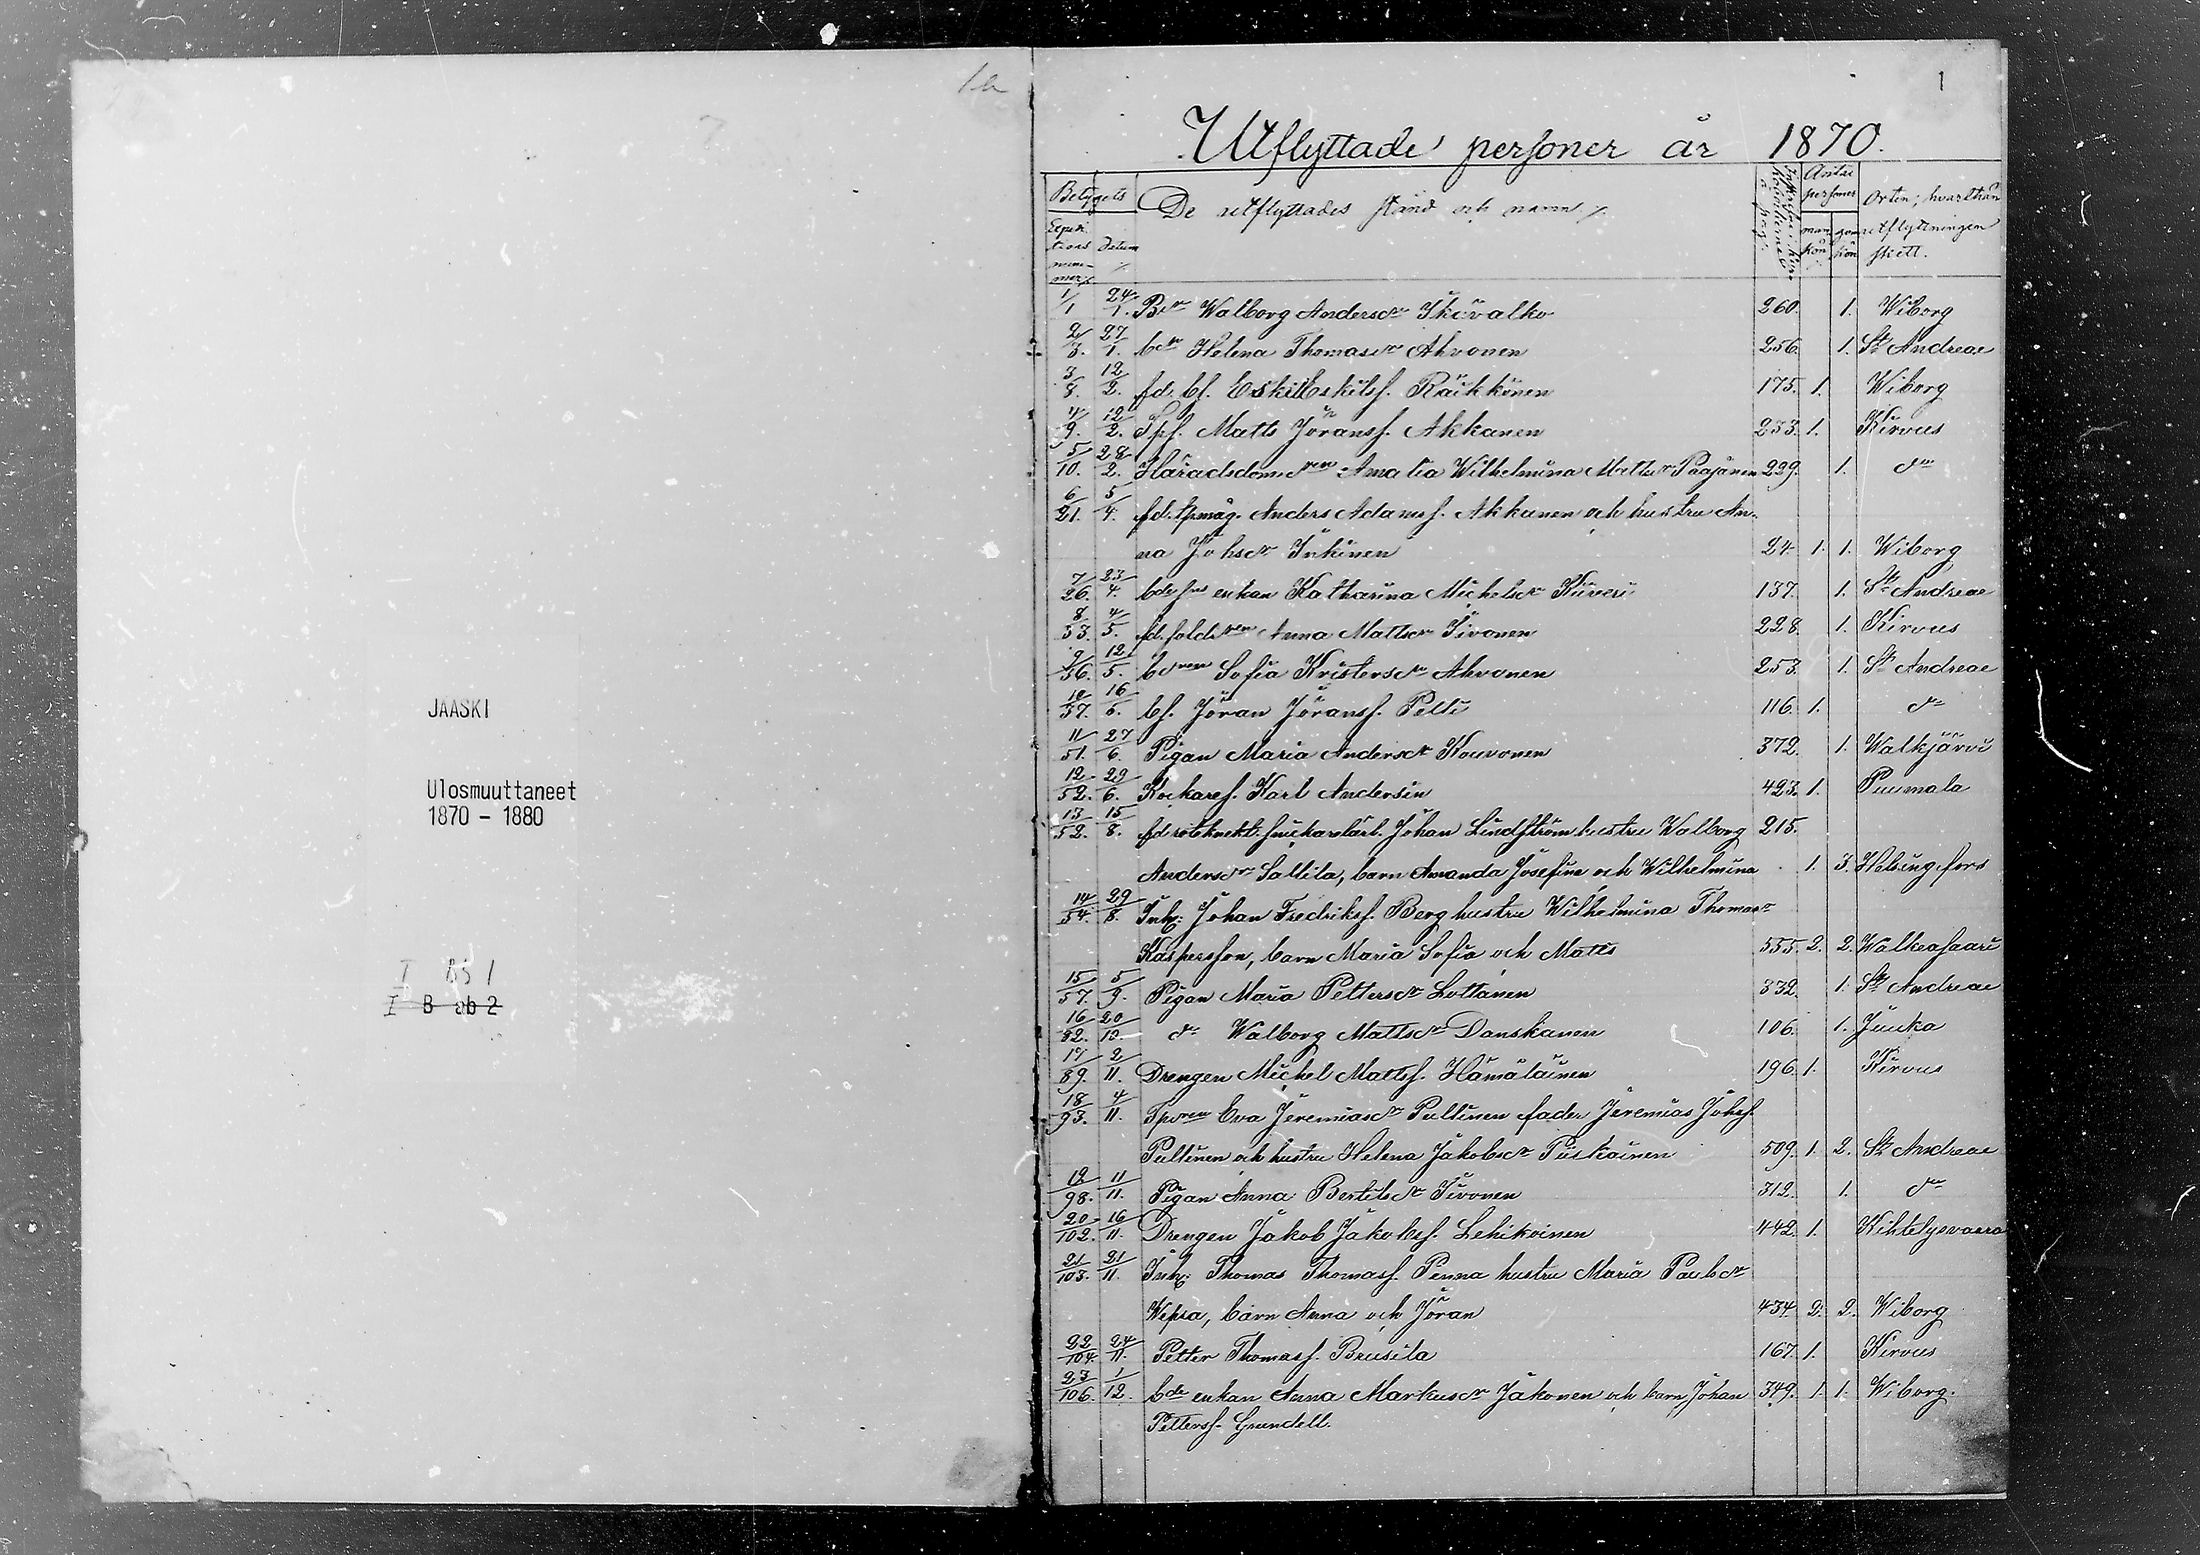 1a
JAASKI
Ulosmuuttaneet
1870 - 1880
I B5 1
I B ab 2
1
Utflyttade personer år 1870.
Betygets De utflyttades stånd och namn Antal personer Orten, hvarthän
Expeditions nummer Datum mankön qvinkön utflyttningen skett.
1/1 24/1. Bdr Walborg Andersdr Ikävalko 260. 1. Wiborg
2/3. 27/1. bdr Helena Thomasdr Ahvonen 256. 1. St Andreae
3/8. 12/2. fd. bf. Eskil Eskilsf. Räikkönen 175. 1. Wiborg
4/9. 12/2. Tpf. Matts Jöransf. Akkanen 233. 1. Kirvus
5/10. 28/2. Häradsdom. dren Amalia Wilhelmina Mattsdr Paajanen 229. 1. do
6/21. 5/4. fd. tpmåg. Anders Adamsf. Akkanen och hustru An-
na Johsdr Inkinen 24. 1. 1. Wiborg
7/26. 23/4. bde enkan Katharina Michelsdr Kiiveri 137. 1. St Andreae
8/33. 4/5. fd. soldren Anna Mattsdr Tivonen 228. 1. Kirvus
9/36. 12/5. bdren Sofia Kristersdr Ahvonen 253. 1. St Andreae
10/37. 16/5. bf. Jöran Jöransf. Pelli 116. 1. do
11/51. 27/6. Pigan Maria Andersdr Kouvonen 372. 1. Walkjärvi
12/52. 29/6. Kockaref. Karl Andersin 423. 1. Puumala
13/52. 15/8. fd roteknekt. snickarelärl. Johan Lindström hustru Walborg 215.
Andersdr Sallila, barn Amanda Josefina och Wilhelmina 1. 3. Helsingfors
14/54. 29/8. Inh: Johan Fredriksf. Berg hustru Wilhelmina Thomasdr
Kaspersson, barn Maria Sofia och Matts 555. 2. 2. Walkeasaari
15/57. 5/9. Pigan Maria Pettersdr Lottanen 332. 1. St Andreae
16/82. 20/10. do Walborg Mattsdr Danskanen 106. 1. Juuka
17/89. 2/11. Drengen Michel Mattsf. Hämäläinen 196. 1. Kirvus
18/93. 4/11. Tpdren Eva Jeremiasdr Pullinen fader Jeremias Johsf.
Pullinen och hustru Helena Jakobsdr Puskainen 509. 1. 2. St Andreae
19/98. 11/11. Pigan Anna Bertilsdr Tivonen 312. 1. do
20/102. 16/11. Drengen Jakob Jakobsf. Lehikoinen 442. 1. Kihtelysvaara
21/103. 21/11. Inh: Thomas Thomasf. Penna hustru Maria Paulsdr
Wepsa, barn Anna och Jöran 434. 2. 2. Wiborg
22/104. 24/11. Petter Thomasf. Brusila 167. 1. Kirvus
23/106. 1/12. bde enkan Anna Markusdr Jakonen och barn Johan 349. 1. 1. Wiborg.
Pettersf. Grundell.